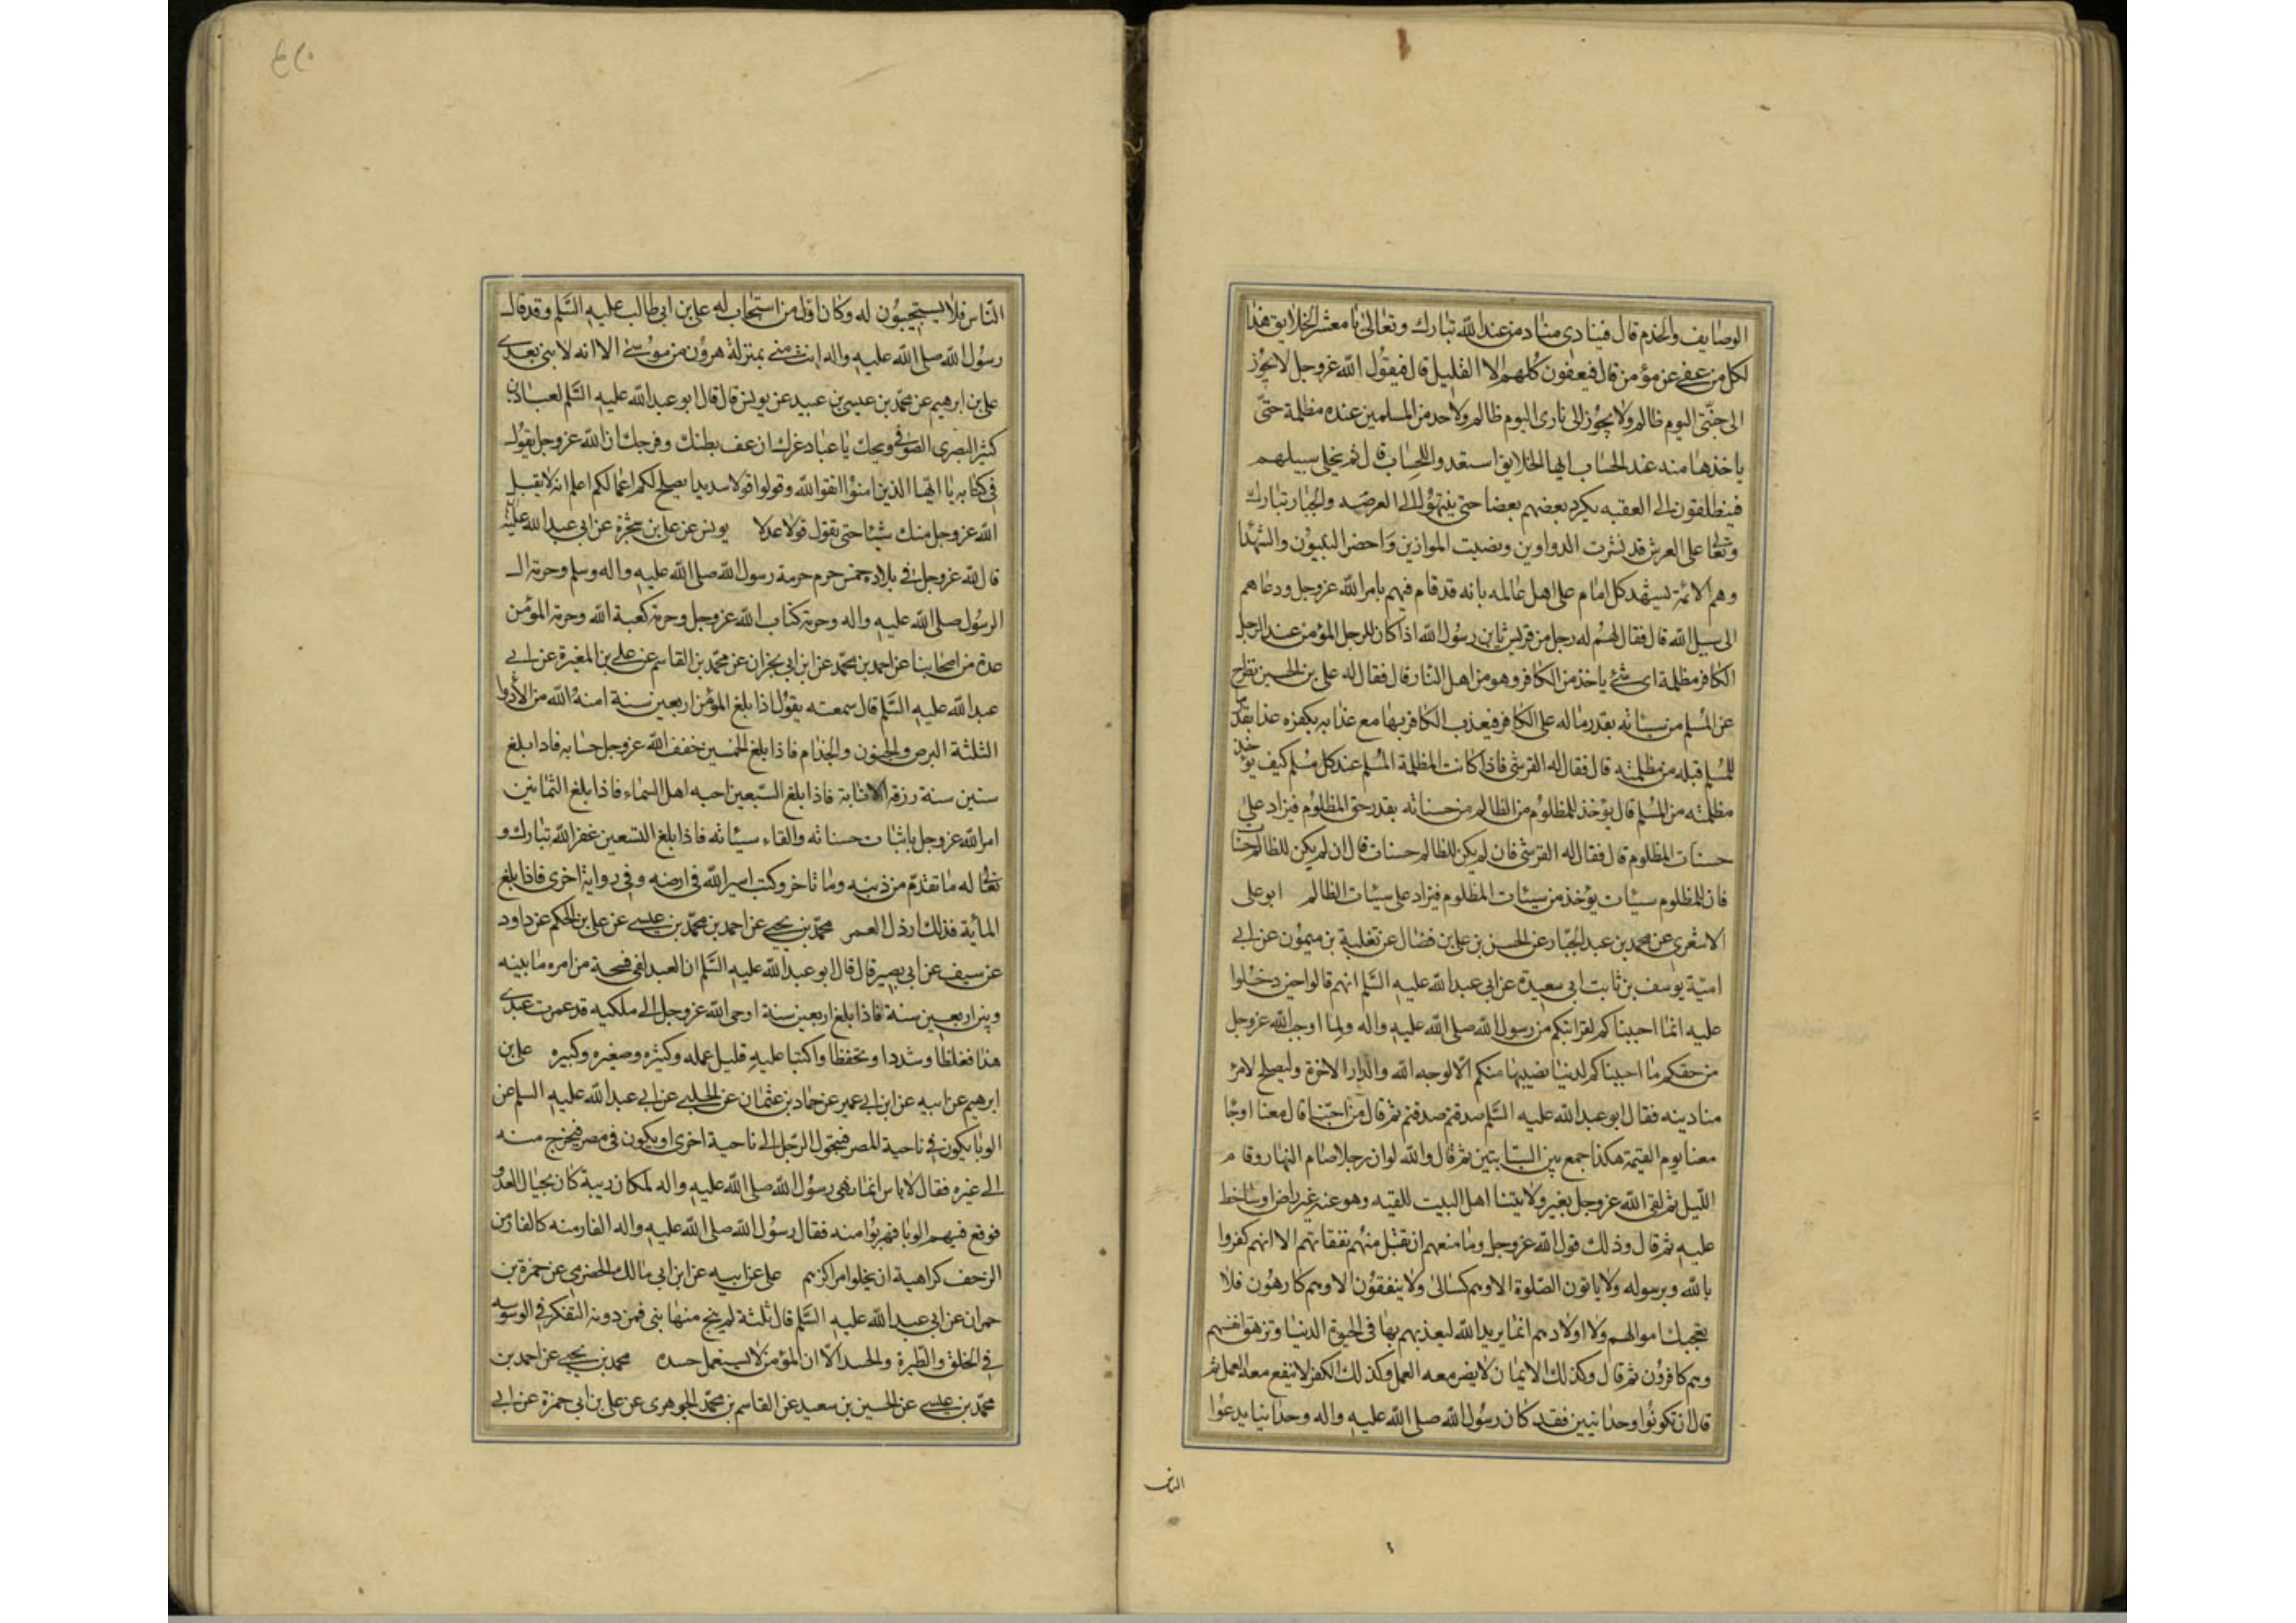 الوصايف والخدم قال فينادى مناد من عند الله تبارك وتعالى يا معشر الخلايق هذا
لكل من عفى عن مؤمن قال فيعفون كلهم الا القليل قال فيقول الله عز وجل لا يجوز
الى جنتى اليوم ظالم ولا يجوز الى نارى اليوم ظالم ولا حد من المسلمين عنده مظلمة حتى
ياخذها منه عند الحساب ايها الخلايق استعدوا للحساب قال ثم يخلى سبيلهم
فينطلقون الى العقبه يكرد بعضهم بعضا حتى ينتهوا الى العرصه والجبار تبارك
وتعالى على العرش قد نشرت الدواوين ونصبت الموازين واحضر النبيون والشهدا
وهم الائمة يشهد كل امام على اهل عالمه بانه قد قام فيهم بامر الله عز وجل ودعاهم
الى سبيل الله قال فقال له رجل من قريش يابن رسول الله اذا كان للرجل المؤمن عند الرجل
الكافر مظلمة اى شئ ياخذ من الكافر وهو من اهل النار قال فقال له على بن الحسين تطرح
عن المسلم من سيئاته بقدر ماله على الكافر فيعذب الكافر بها مع عذابه بكفره عذابا بقدر ما
للمسلم قبله من مظلمته قال فقال له القرشى فاذا كانت المظلمة المسلم عند كل مسلم كيف يؤخذ
مظلمته من المسلم قال يؤخذ للمظلوم من الظالم من حسناته بقدر حق المظلوم فيزاد على
حسنات المظلوم قال فقال له القرشى فان لم يكن للظالم حسنات قال ان لم يكن للظالم حسنات
فان للمظلوم سيئات يؤخذ من سيئات المظلوم فيزاد على سيئات الظالم ابو على
الاشعرى عن محمد بن عبد الجبار عن الحسن بن على بن فضال عن تغلبة بن ميمون عن ابى
امية يوسف بن ثابت ابى سعيدة عن ابى عبد الله عليه السلم انهم قالوا حين دخلوا
عليه انما احببناكم لقرابتكم من رسول الله صلى الله عليه واله ولما اوجب الله عز وجل
من حقكم ما احببناكم لدنيا نصيبها منكم الا لوجه الله والدار الاخرة وليصلح لامرء
منا دينه فقال ابو عبد الله عليه السلم صدقتم صدقتم ثم قال من احبنا قال معنا او جا
معنا يوم القيمة هكذا جمع بين السبابتين ثم قال والله لو ان رجلا صام النهار وقام
الليل ثم لقى الله عز وجل بغير ولايتنا اهل البيت للقيه وهو عنه غير راض او ساخط
عليه ثم قال وذلك قول الله عز وجل وما منعهم ان تقبل منهم نفقاتهم الا انهم كفروا
بالله وبرسوله ولا ياتون الصلوة الا وهم كسالى ولا ينفقون الا وهم كارهون فلا
يعجبك اموالهم ولا اولادهم انما يريد الله ليعذبهم بها فى الحيوة الدنيا وتزهق انفسهم
وهم كافرون ثم قال وكذلك الايمان لا يضر معه العمل وكذلك الكفر لا ينفع معه العمل ثم
قال ان تكونوا وحدانيين فقد كان رسول الله صلى الله عليه واله وحدانيا يدعوا
الناس
الناس فلا يستجيبون له وكان اول من استجاب له على بن ابى طالب عليه السلم وقد قال
رسول الله صلى الله عليه واله انت منى بمنزلة هرون من موسى الا انه لا نبى بعدى
على بن ابرهيم عن محمد بن عيسى بن عبيد عن يونس قال قال ابو عبد الله عليه السلم لعباد بن
كثير البصرى الصوفى ويحك يا عباد غرك ان عف بطنك وفرجك ان الله عز وجل يقول
فى كتابه يا ايها الذين امنوا اتقوا الله وقولوا قولا سديدا يصلح لكم اعمالكم اعلم انه لا يقبل
الله عز وجل منك شيئا حتى تقول قولا عدلا يونس عن على بن شجرة عن ابى عبد الله عليه
قال لله عز وجل فى بلاده خمس حرم حرمة رسول الله صلى الله عليه واله وسلم وحرمة ال
الرسول صلى الله عليه واله وحرمة كتاب الله عز وجل وحرمة كعبة الله وحرمة المؤمن
عدة من اصحابنا عن احمد بن محمد عن ابن ابى نجران عن محمد بن القاسم عن على بن المغيرة عن ابى
عبد الله عليه السلم قال سمعته يقول اذا بلغ المؤمن اربعين سنة امنه الله من الأدوا
الثلثة البرص والجنون والجذام فاذا بلغ الخمسين خفف الله عز وجل حسابه فاذا بلغ
ستين سنة رزقه الانابة فاذا بلغ السبعين احبه اهل السماء فاذا بلغ الثمانين
امر الله عز وجل باثبات حسناته والقاء سيئاته فاذا بلغ التسعين غفر الله تبارك و
تعالى له ما تقدم من ذنبه وما تاخر وكتب اسير الله فى ارضه وفى رواية اخرى فاذا بلغ
المأية فذلك ارذل العمر محمد بن يحيى عن احمد بن محمد بن عيسى عن على بن الحكم عن داود
عن سيف عن ابى بصير قال قال ابو عبد الله عليه السلم ان العبد لفى فسحة من امره ما بينه
وبين اربعين سنة فاذا بلغ اربعين سنة اوحى الله عز وجل الى ملكيه قد عمرت عبدى
هذا فغلظا وشددا وتحفظا واكتبا عليه قليل عمله وكثيره وصغيره وكبيره على بن
ابرهيم عن ابيه عن ابن ابى عمير عن حماد بن عثمان عن الحلبى عن ابى عبد الله عليه السلم عن
الوبا يكون فى ناحية المصر فيتحول الرجل الى ناحية اخرى او يكون فى مصر فيخرج منه
الى غيره فقال لا باس انما نهى رسول الله صلى الله عليه واله لمكان ريبة كان بحيال العدو
فوقع فيهم الوبا فهربوا منه فقال رسول الله صلى الله عليه واله الفار منه كالفار من
الزحف كراهية ان يخلوا مراكزهم على عن ابيه عن ابن ابى مالك الحضرمى عن حمزة بن
حمران عن ابى عبد الله عليه السلم قال ثلثة لم ينج منها نبى فمن دونه التفكر فى الوسوسه
فى الخلق والطيرة والحسد الا ان المؤمن لا يستعمل حسده محمد بن يحيى عن احمد بن
محمد بن عيسى عن الحسين بن سعيد عن القاسم بن محمد الجوهرى عن على بن ابى حمزة عن ابى